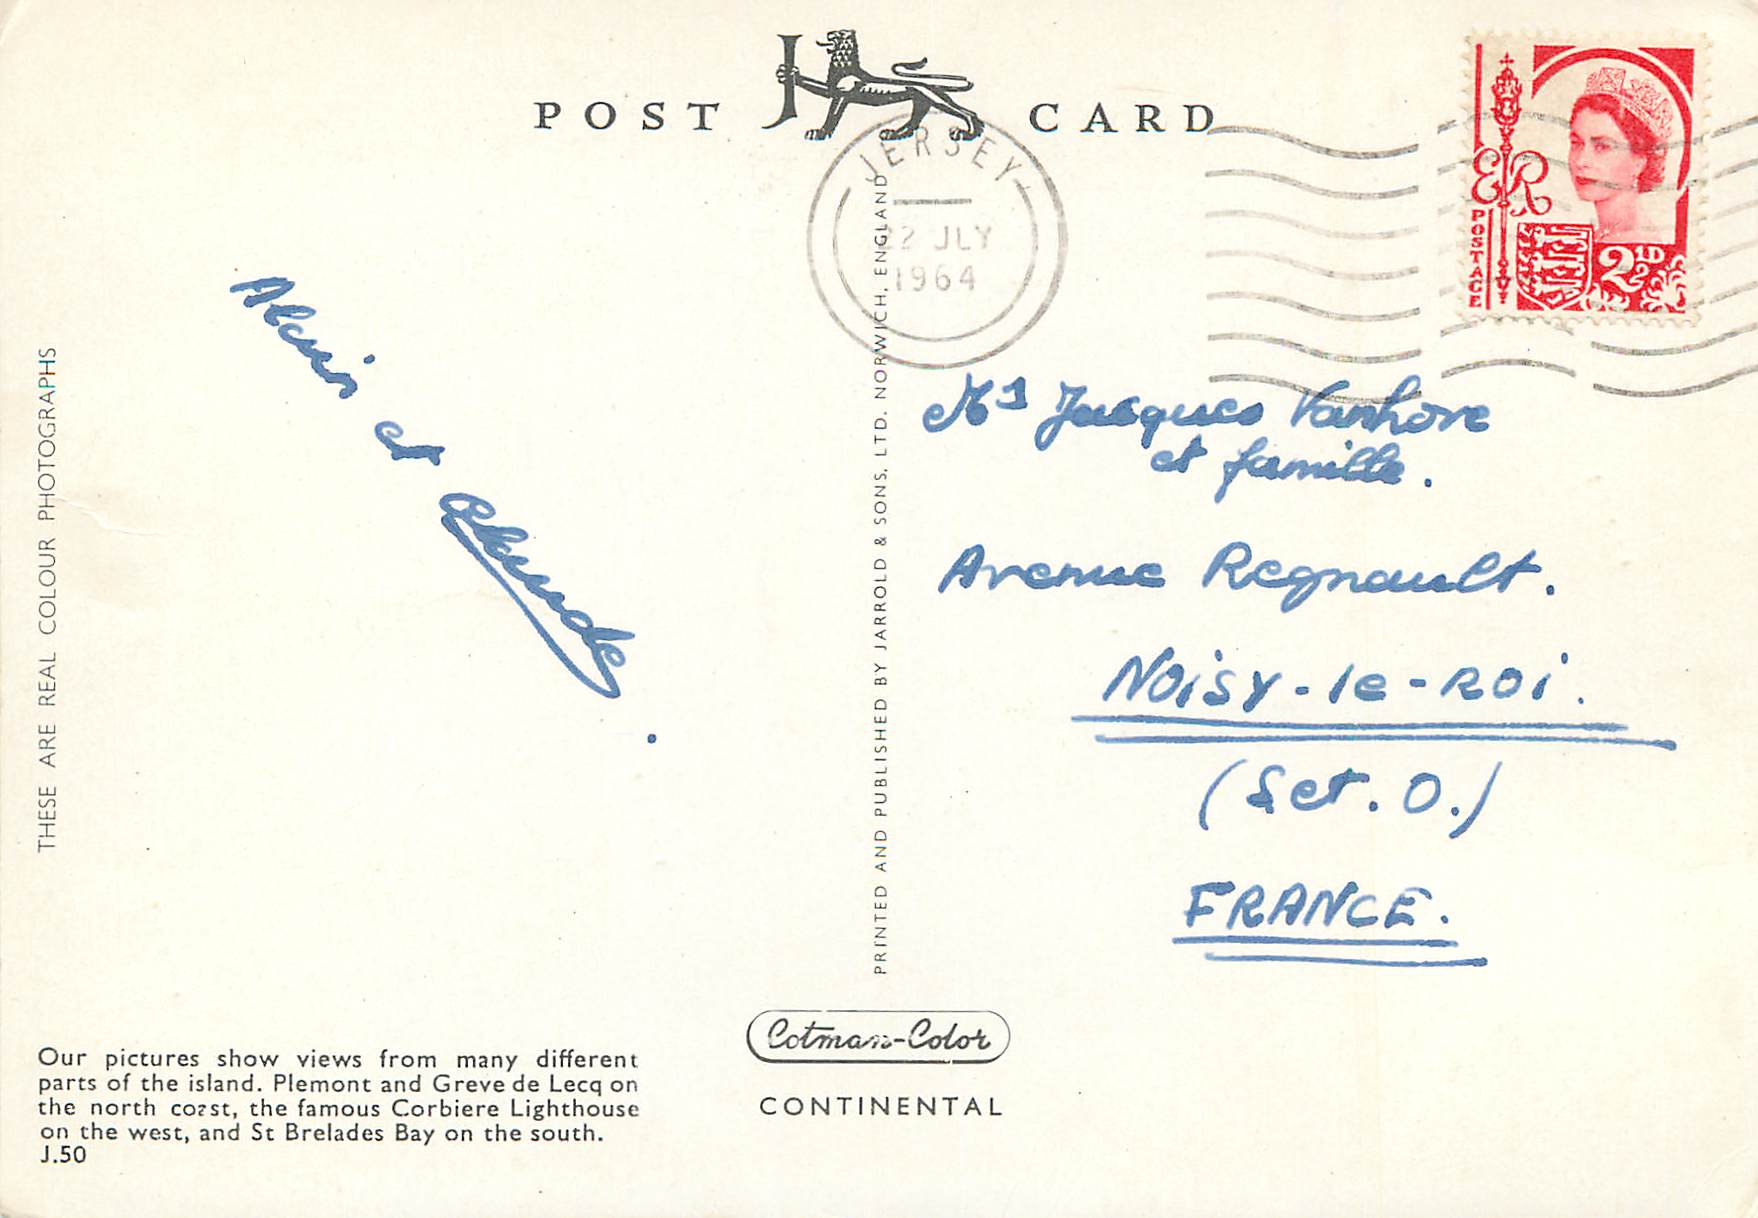 POST CARD
JERSEY
22 JLY
1964
ER
POSTAGE
2½D
THESE ARE REAL COLOUR PHOTOGRAPHS
Alain et Claude.
PRINTED AND PUBLISHED BY JARROLD & SONS, LTD. NORWICH, ENGLAND
Jacques Vanhove
et famille.
Avenue Regnault.
NOiSY-le-ROi.
(S et. O.)
FRANCE.
Our pictures show views from many different
parts of the island. Plemont and Greve de Lecq on
the north coast, the famous Corbiere Lighthouse
on the west, and St Brelades Bay on the south.
J.50
Cotman-Color
CONTINENTAL